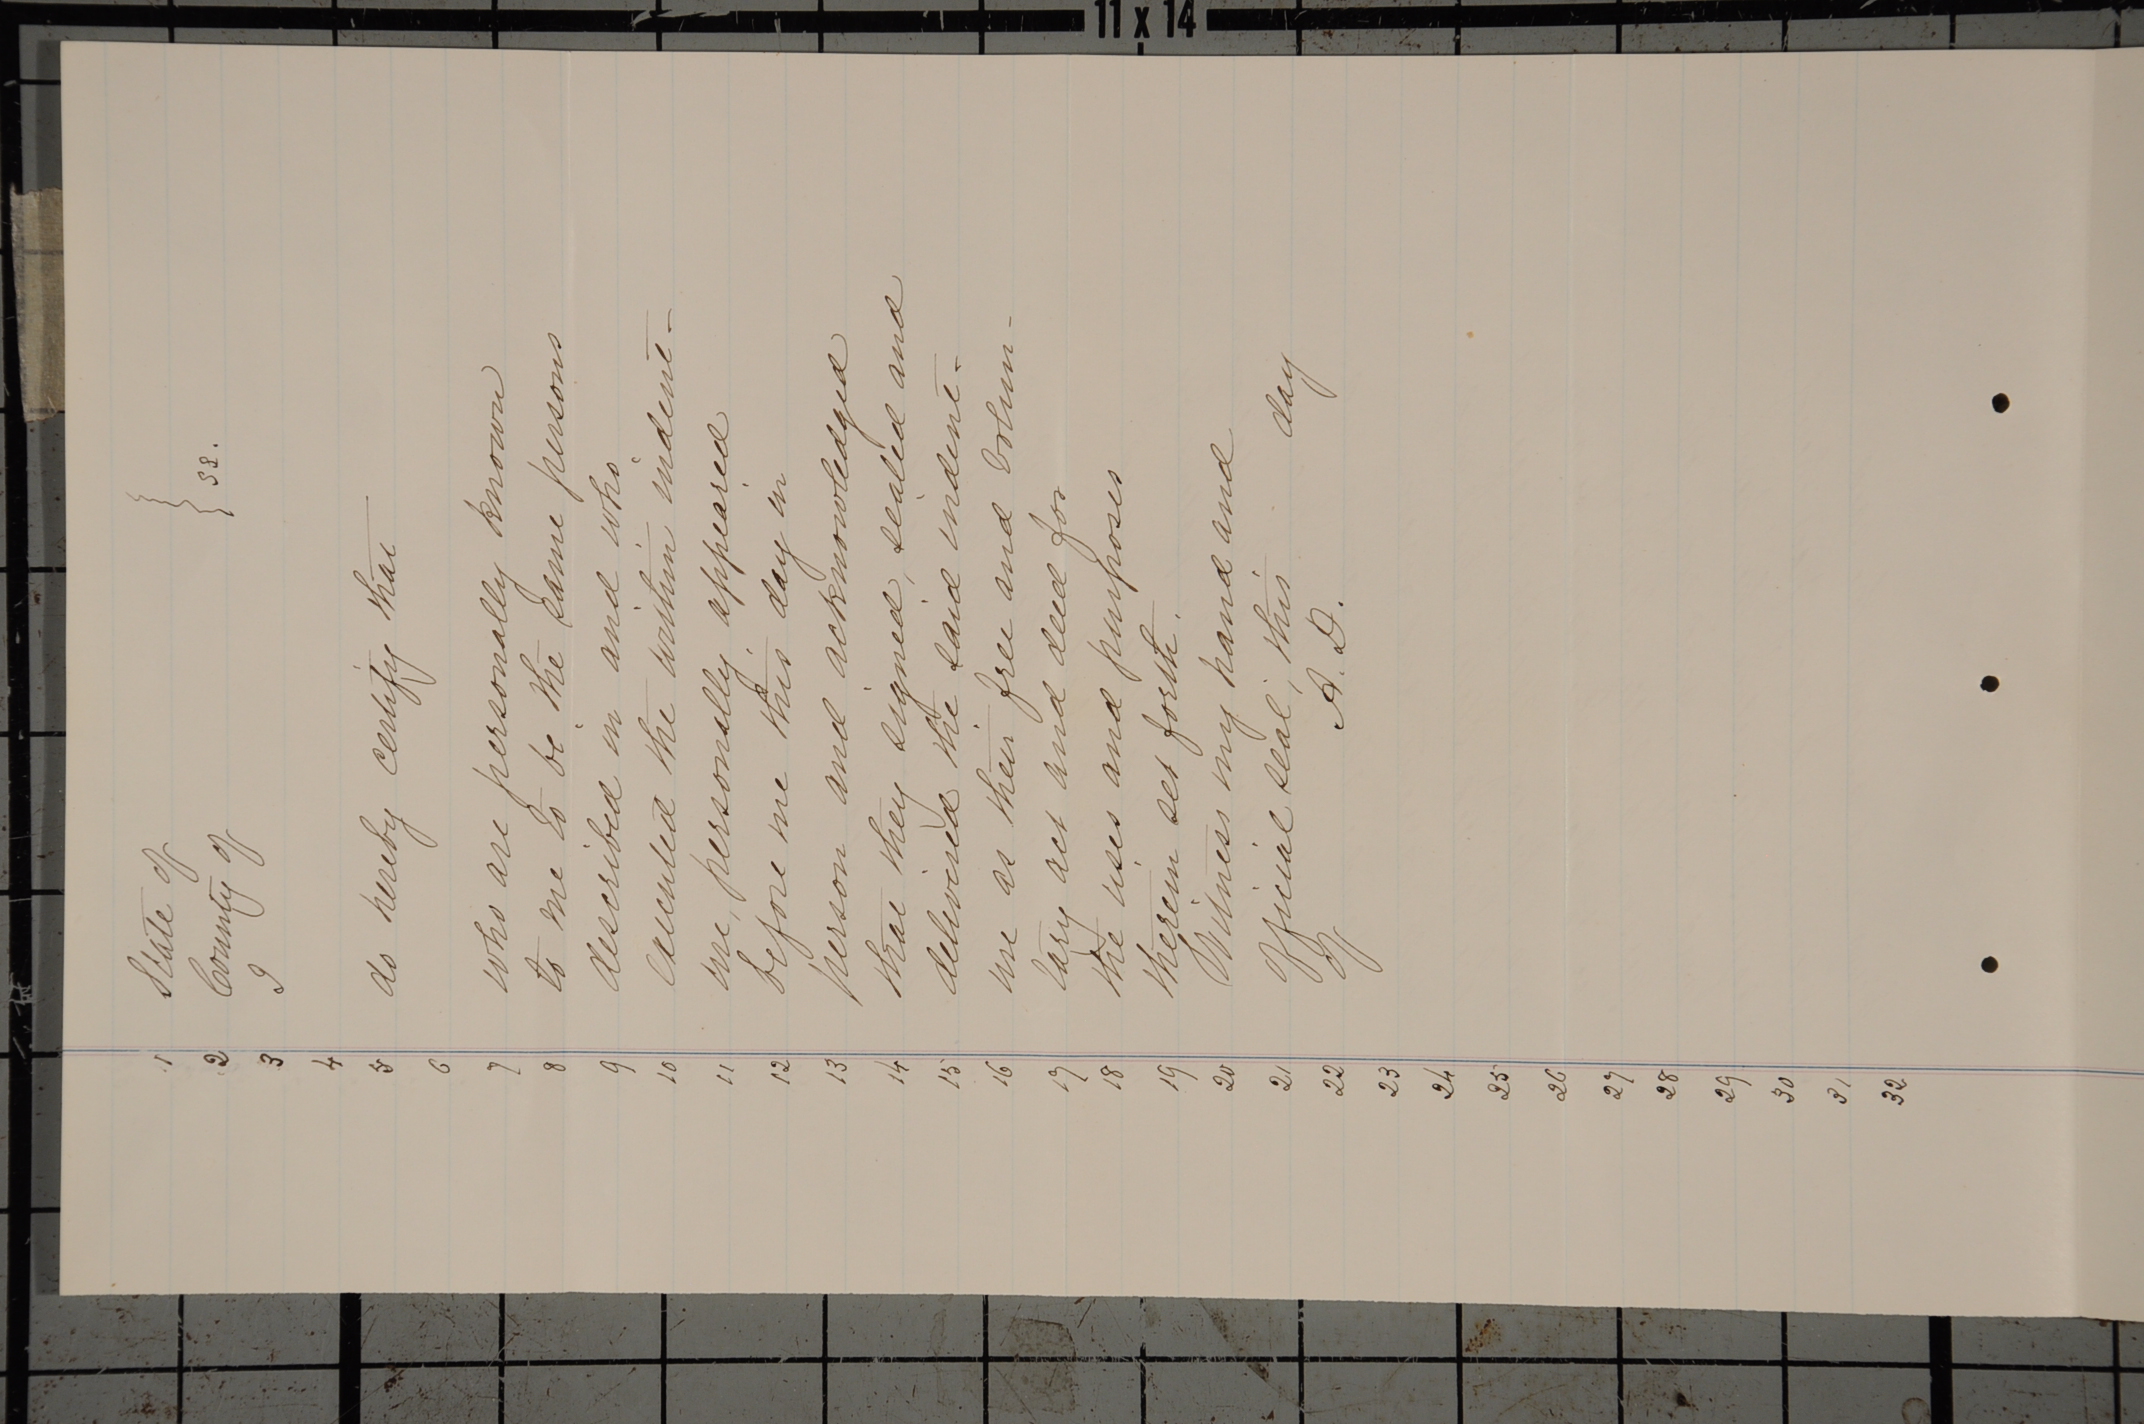 11 x 14
1 State of }
2 County of } ss.
3 I
4
5 do hereby certify that
6
7 who are personally known
8 to me to be the same persons
9 described in and who
10 executed the within indent-
11 ure, personally appeared
12 before me this day in
13 person and acknowledged
14 that they signed, sealed and
15 delivered the said indent-
16 ure as their free and volun-
17 tary act and deed for
18 the uses and purposes
19 therein set forth.
20 Witness my hand and
21 Official seal, this day
22 of A.D.
23
24
25
26
27
28
29
30
31
32